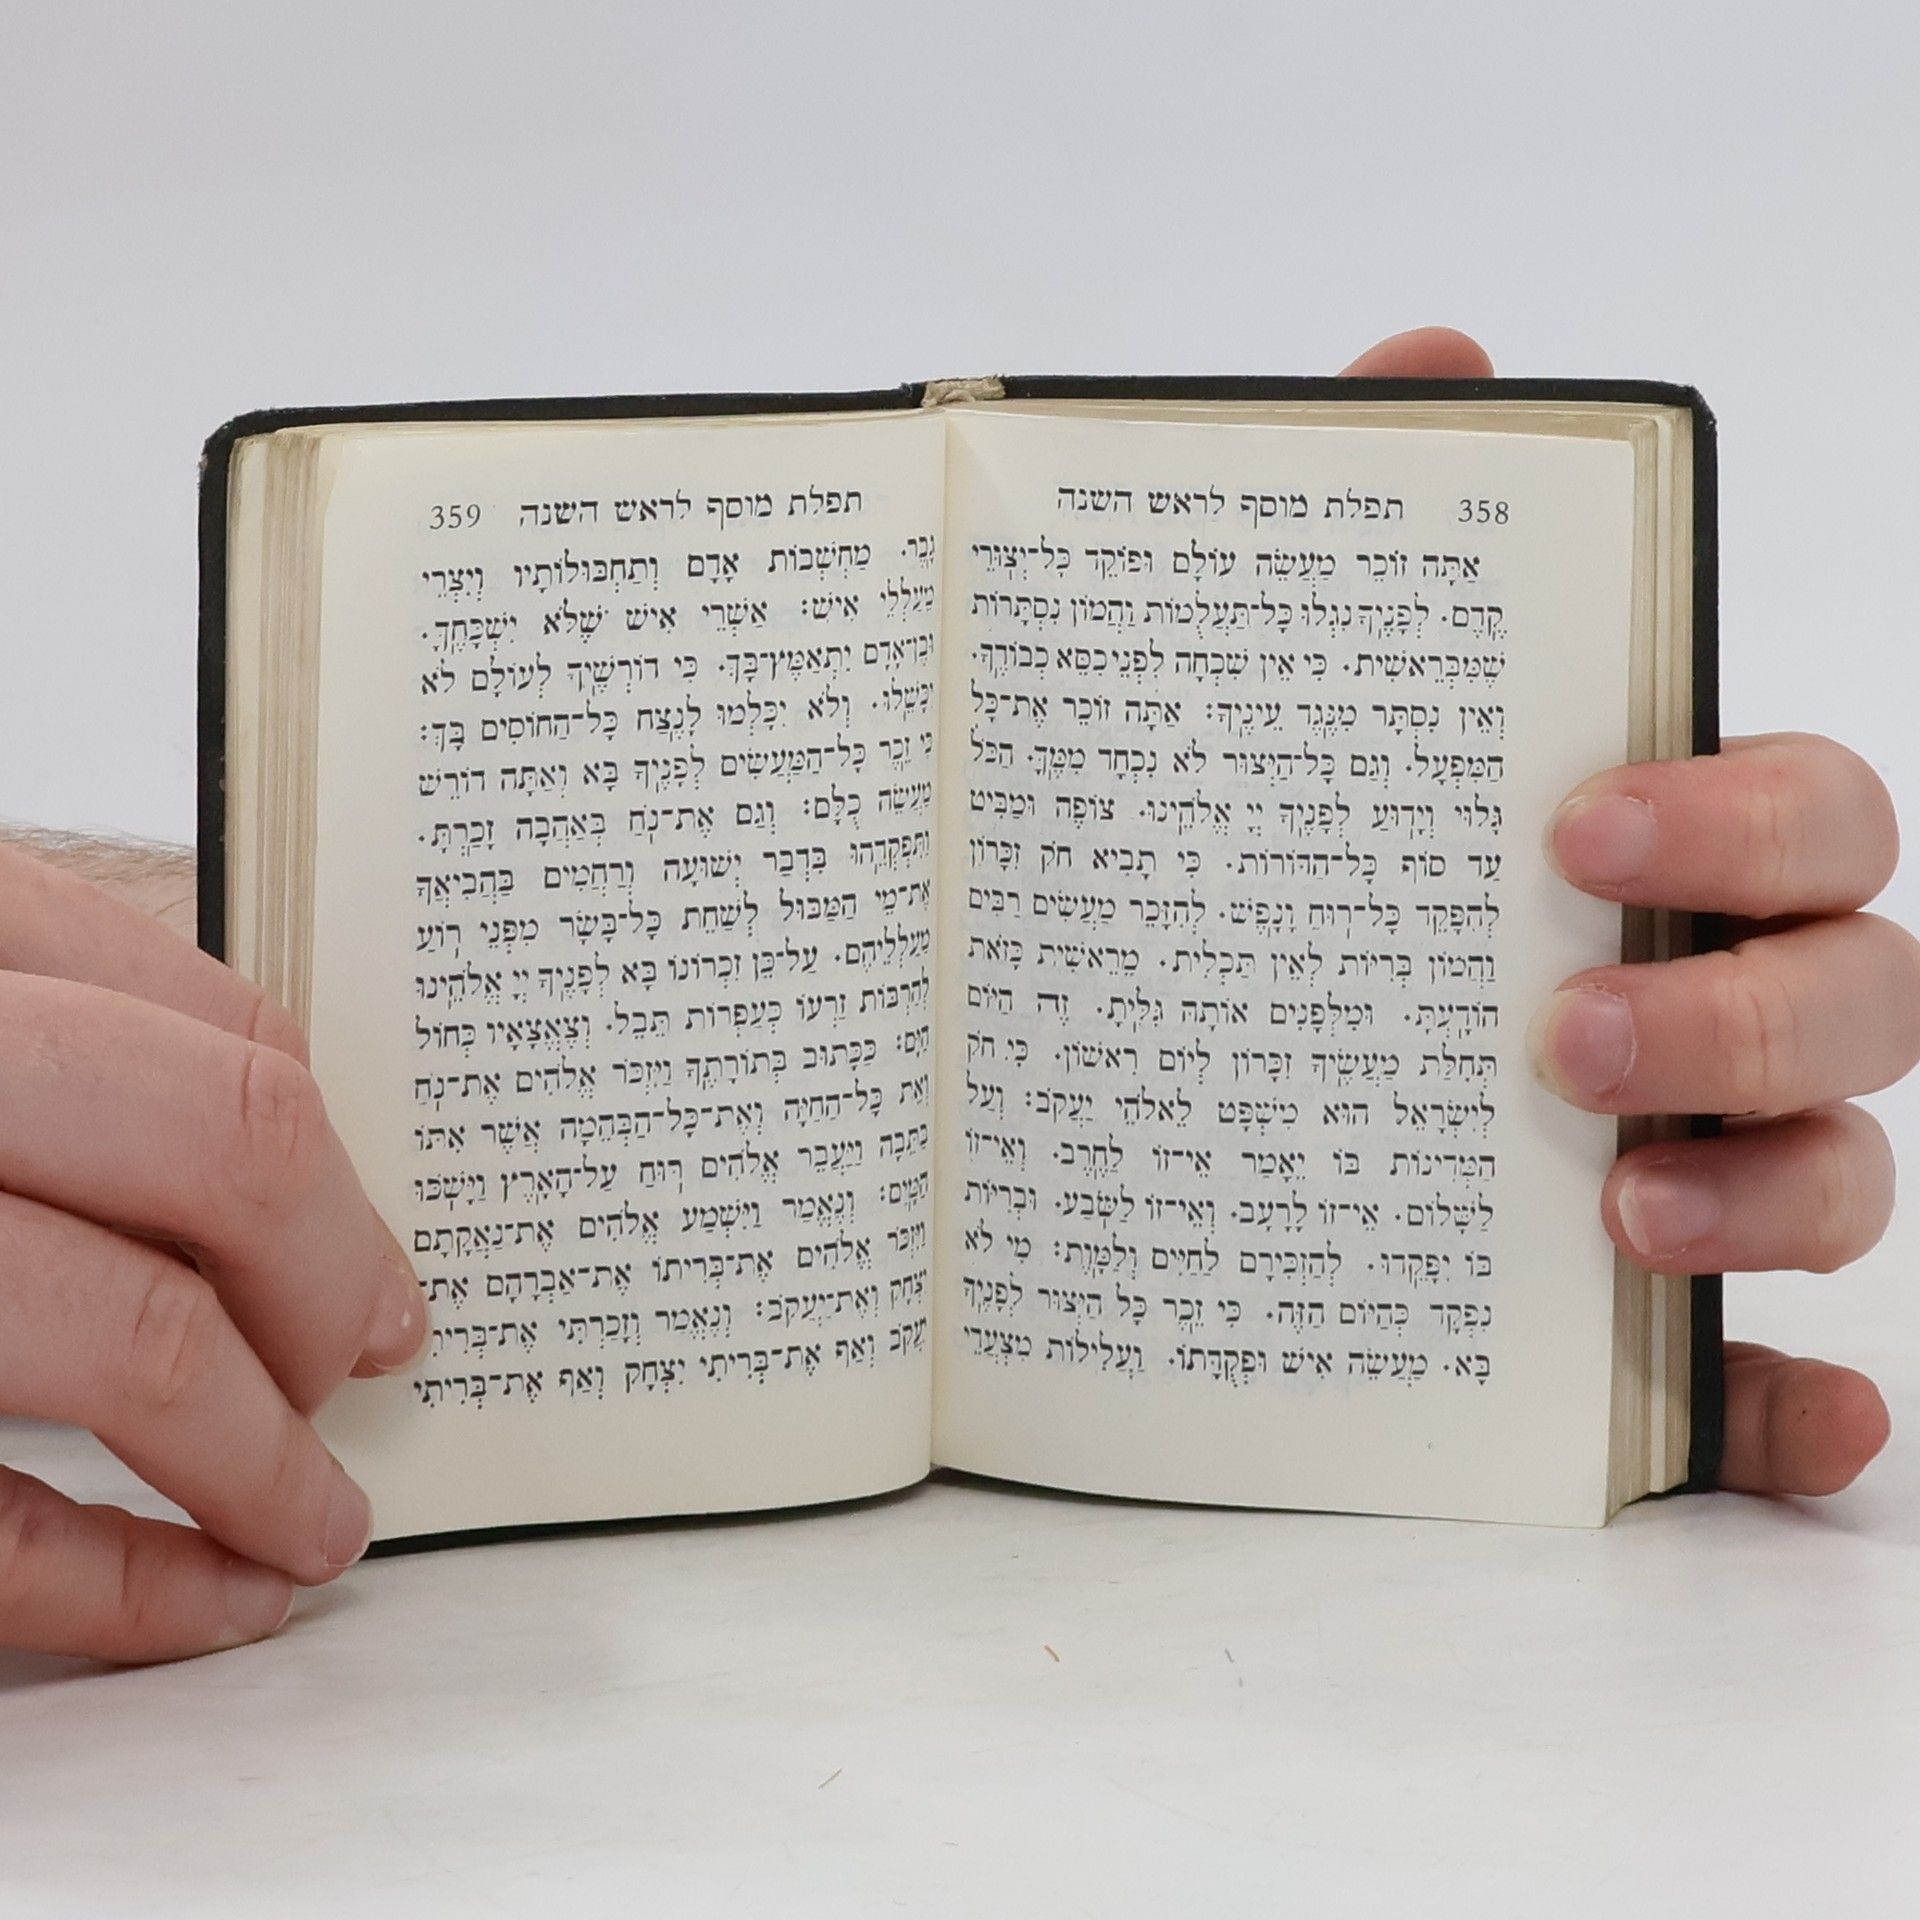 358 תפלת מוסף לראש השנה
אַתָּה זוֹכֵר מַעֲשֵׂה עוֹלָם וּפוֹקֵד כָּל־יְצוּרֵי
קֶדֶם. לְפָנֶיךָ נִגְלוּ כָּל־תַּעֲלֻמוֹת וַהֲמוֹן נִסְתָּרוֹת
שֶׁמִּבְּרֵאשִׁית. כִּי אֵין שִׁכְחָה לִפְנֵי כִסֵּא כְבוֹדֶךָ.
וְאֵין נִסְתָּר מִנֶּגֶד עֵינֶיךָ: אַתָּה זוֹכֵר אֶת־כָּל
הַמִּפְעָל. וְגַם כָּל־הַיְצוּר לֹא נִכְחָד מִמֶּךָּ. הַכֹּל
גָּלוּי וְיָדוּעַ לְפָנֶיךָ יְיָ אֱלֹהֵינוּ. צוֹפֶה וּמַבִּיט
עַד סוֹף כָּל־הַדּוֹרוֹת. כִּי תָבִיא חֹק זִכָּרוֹן
לְהִפָּקֵד כָּל־רוּחַ וָנָפֶשׁ. לְהִזָּכֵר מַעֲשִׂים רַבִּים
וַהֲמוֹן בְּרִיּוֹת לְאֵין תַּכְלִית. מֵרֵאשִׁית כָּזֹאת
הוֹדָעְתָּ. וּמִלְּפָנִים אוֹתָהּ גִּלִּיתָ. זֶה הַיּוֹם
תְּחִלַּת מַעֲשֶׂיךָ זִכָּרוֹן לְיוֹם רִאשׁוֹן. כִּי חֹק
לְיִשְׂרָאֵל הוּא מִשְׁפָּט לֵאלֹהֵי יַעֲקֹב: וְעַל
הַמְּדִינוֹת בּוֹ יֵאָמֵר אֵי־זוֹ לַחֶרֶב. וְאֵי־זוֹ
לַשָּׁלוֹם. אֵי־זוֹ לָרָעָב. וְאֵי־זוֹ לַשֹּׂבַע. וּבְרִיּוֹת
בּוֹ יִפָּקֵדוּ. לְהַזְכִּירָם לַחַיִּים וְלַמָּוֶת: מִי לֹא
נִפְקָד כְּהַיּוֹם הַזֶּה. כִּי זֵכֶר כָּל הַיְצוּר לְפָנֶיךָ
בָּא. מַעֲשֵׂה אִישׁ וּפְקֻדָּתוֹ. וַעֲלִילוֹת מִצְעֲדֵי
תפלת מוסף לראש השנה 359
גָבֶר. מַחְשְׁבוֹת אָדָם וְתַחְבּוּלוֹתָיו וְיִצְרֵי
מַעַלְלֵי אִישׁ: אַשְׁרֵי אִישׁ שֶׁלֹּא יִשְׁכָּחֶךָּ.
וּבֶן־אָדָם יִתְאַמֶּץ־בָּךְ. כִּי דוֹרְשֶׁיךָ לְעוֹלָם לֹא
יִכָּשֵׁלוּ. וְלֹא יִכָּלְמוּ לָנֶצַח כָּל־הַחוֹסִים בָּךְ:
כִּי זֵכֶר כָּל־הַמַּעֲשִׂים לְפָנֶיךָ בָּא וְאַתָּה דוֹרֵשׁ
מַעֲשֵׂה כֻלָּם: וְגַם אֶת־נֹחַ בְּאַהֲבָה זָכַרְתָּ.
וַתִּפְקְדֵהוּ בִּדְבַר יְשׁוּעָה וְרַחֲמִים בַּהֲבִיאֲךָ
אֶת־מֵי הַמַּבּוּל לְשַׁחֵת כָּל־בָּשָׂר מִפְּנֵי רוֹעַ
מַעַלְלֵיהֶם. עַל־כֵּן זִכְרוֹנוֹ בָּא לְפָנֶיךָ יְיָ אֱלֹהֵינוּ
לְהַרְבּוֹת זַרְעוֹ כְּעַפְרוֹת תֵּבֵל. וְצֶאֱצָאָיו כְּחוֹל
הַיָּם: כַּכָּתוּב בְּתוֹרָתֶךָ וַיִּזְכֹּר אֱלֹהִים אֶת־נֹחַ
וְאֵת כָּל־הַחַיָּה וְאֶת־כָּל־הַבְּהֵמָה אֲשֶׁר אִתּוֹ
בַּתֵּבָה וַיַּעֲבֵר אֱלֹהִים רוּחַ עַל־הָאָרֶץ וַיָּשֹׁכּוּ
הַמָּיִם: וְנֶאֱמַר וַיִּשְׁמַע אֱלֹהִים אֶת־נַאֲקָתָם
וַיִּזְכֹּר אֱלֹהִים אֶת־בְּרִיתוֹ אֶת־אַבְרָהָם אֶת־
יִצְחָק וְאֶת־יַעֲקֹב: וְנֶאֱמַר וְזָכַרְתִּי אֶת־בְּרִיתִי
יַעֲקֹב וְאַף אֶת־בְּרִיתִי יִצְחָק וְאַף אֶת־בְּרִיתִי